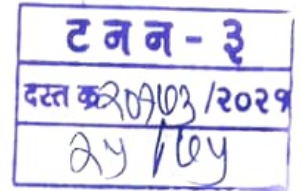 ट न न - ३
दस्त क्र २०७७३ / २०२१
२५ / ७५